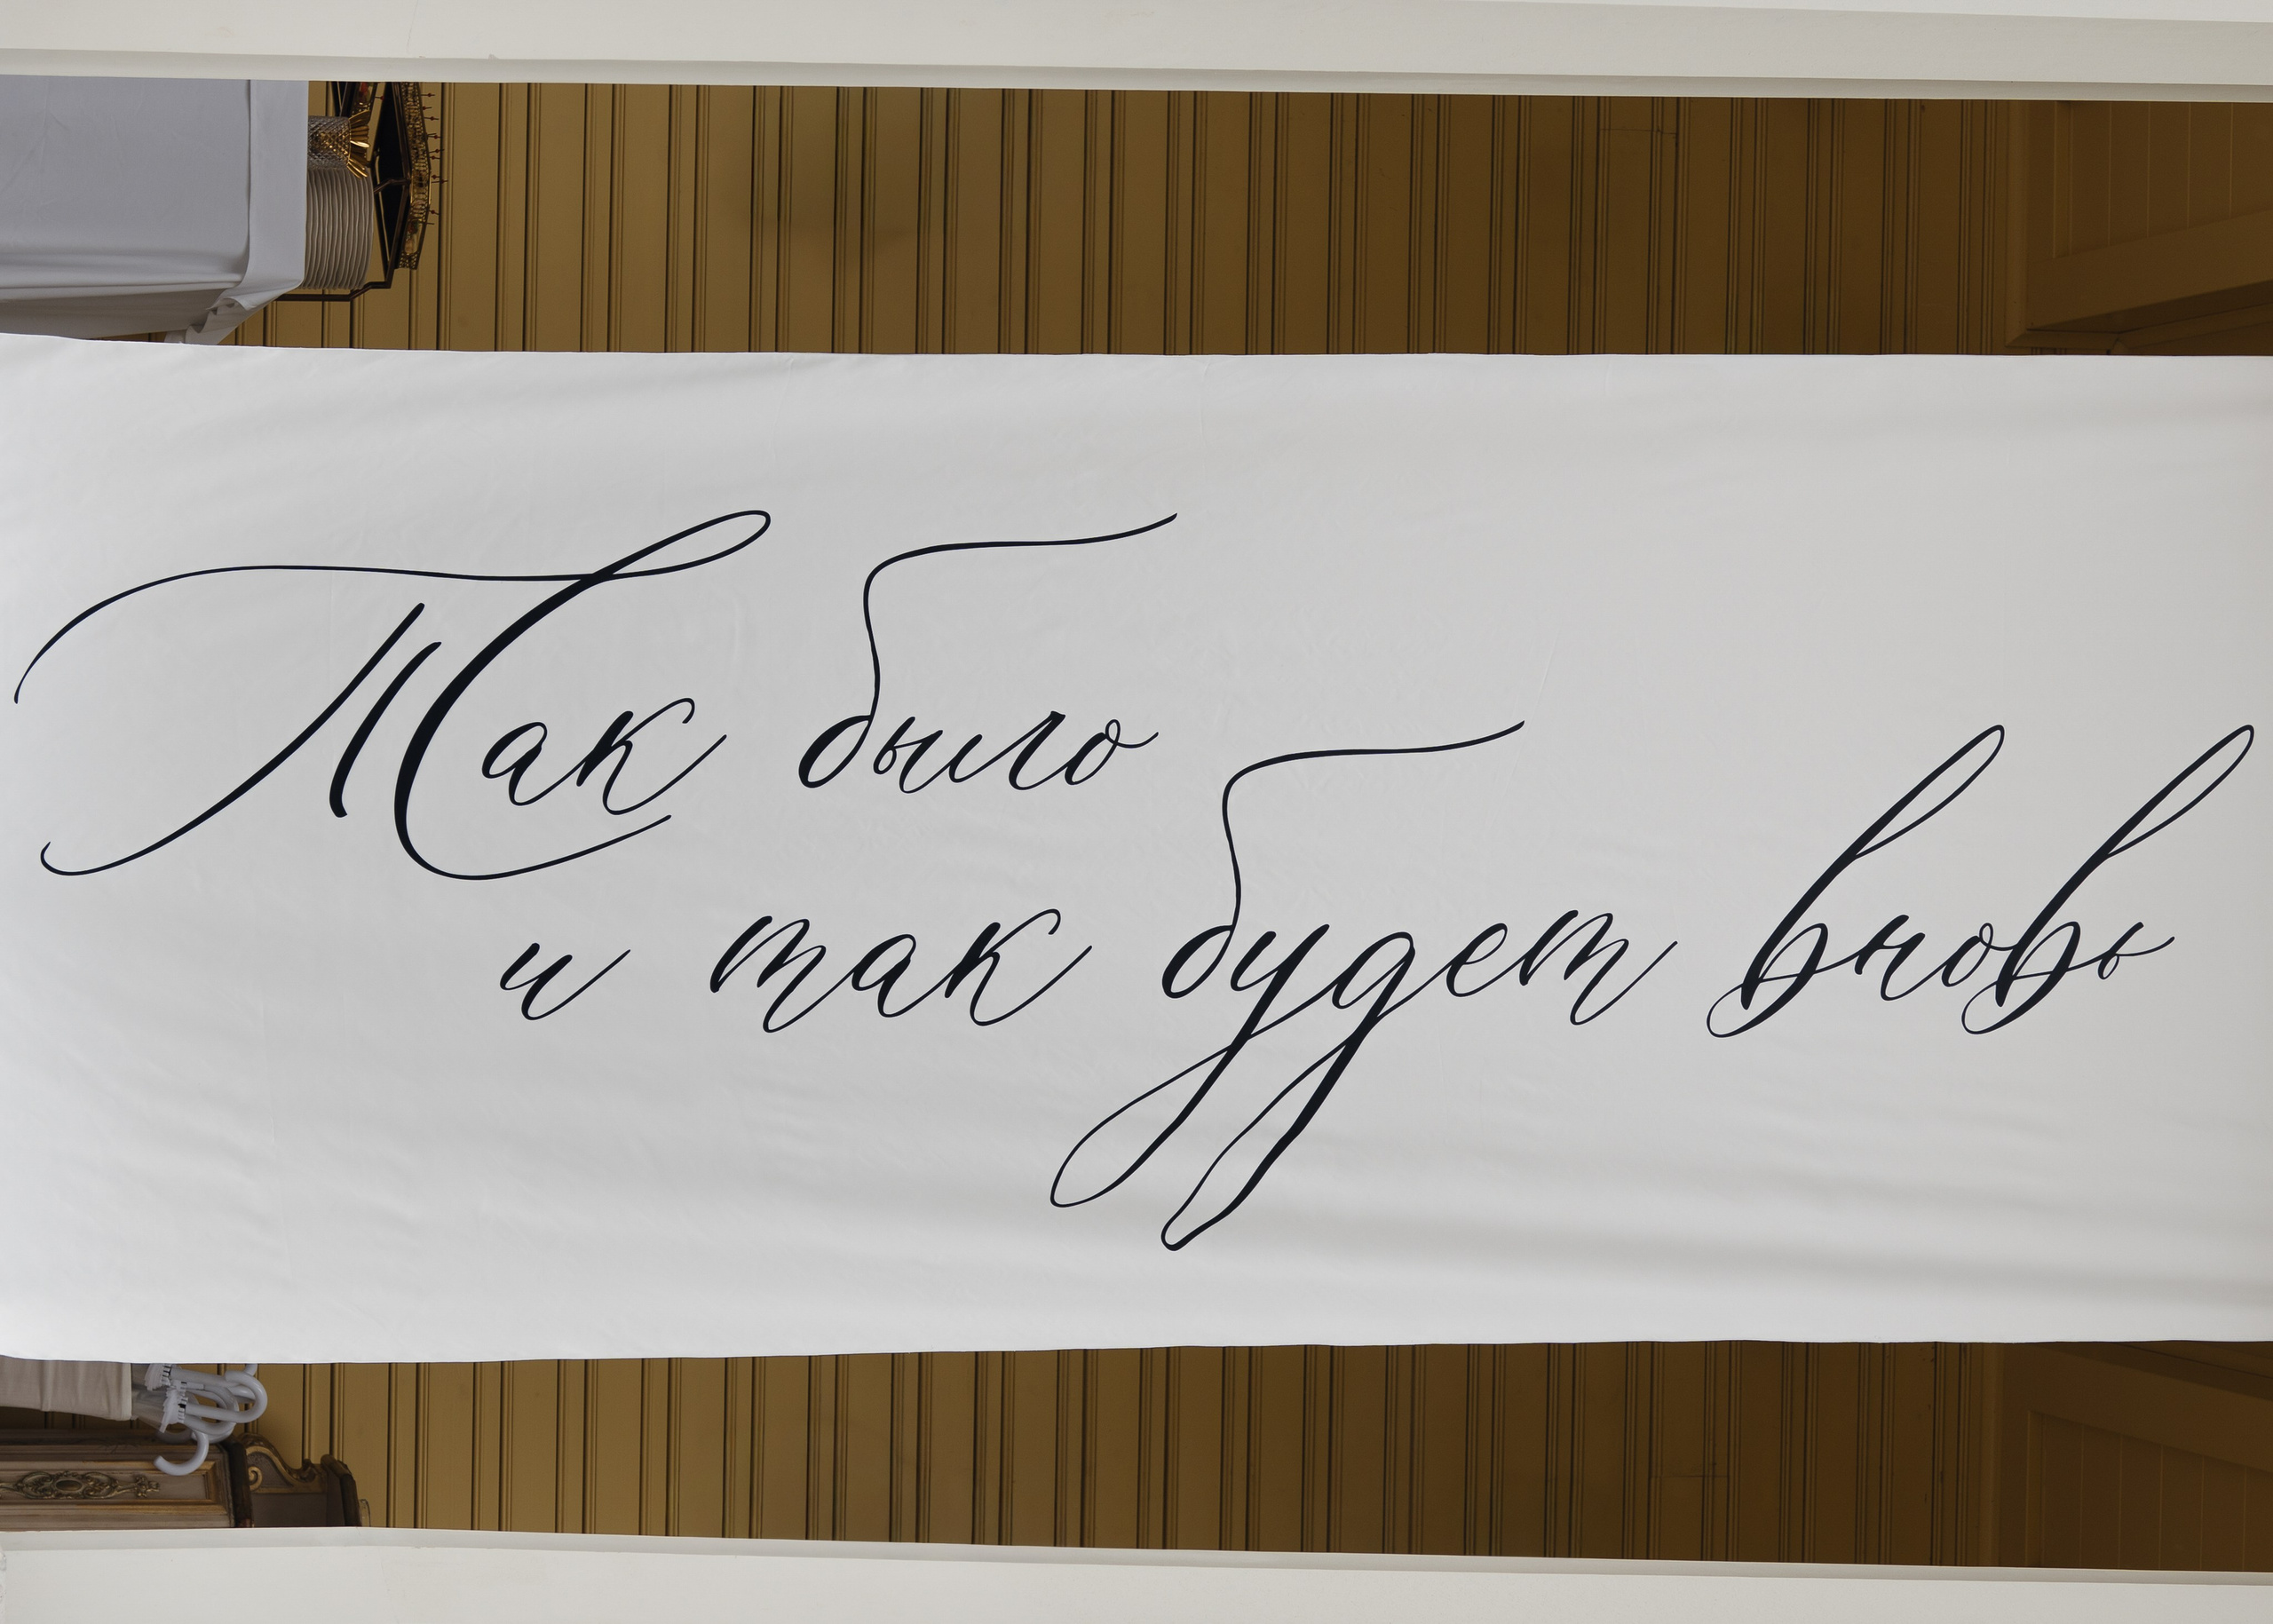 Так было
и так будет вновь